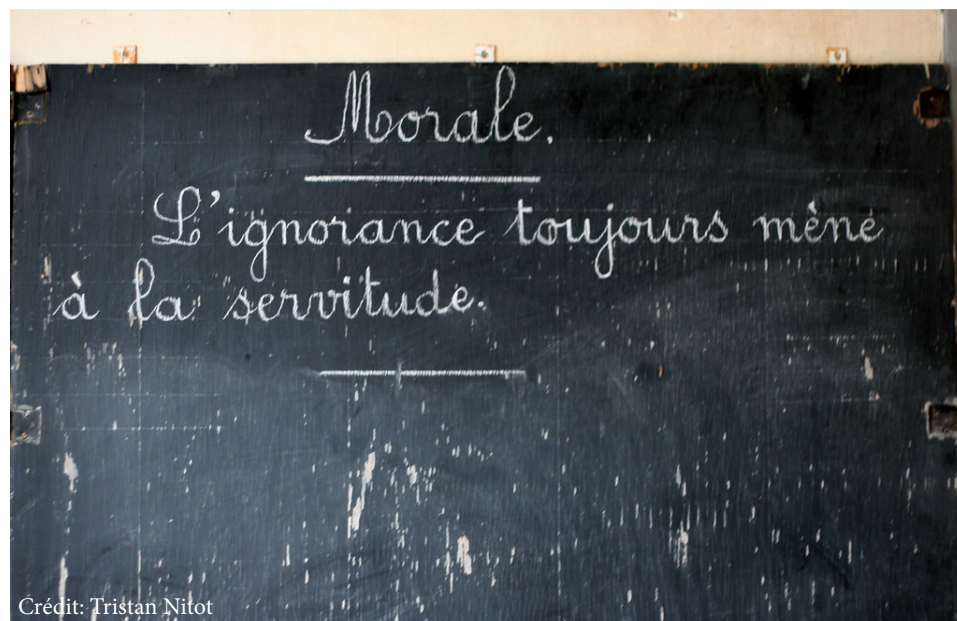 Morale.
L'ignorance toujours mène
à la servitude.
Crédit: Tristan Nitot